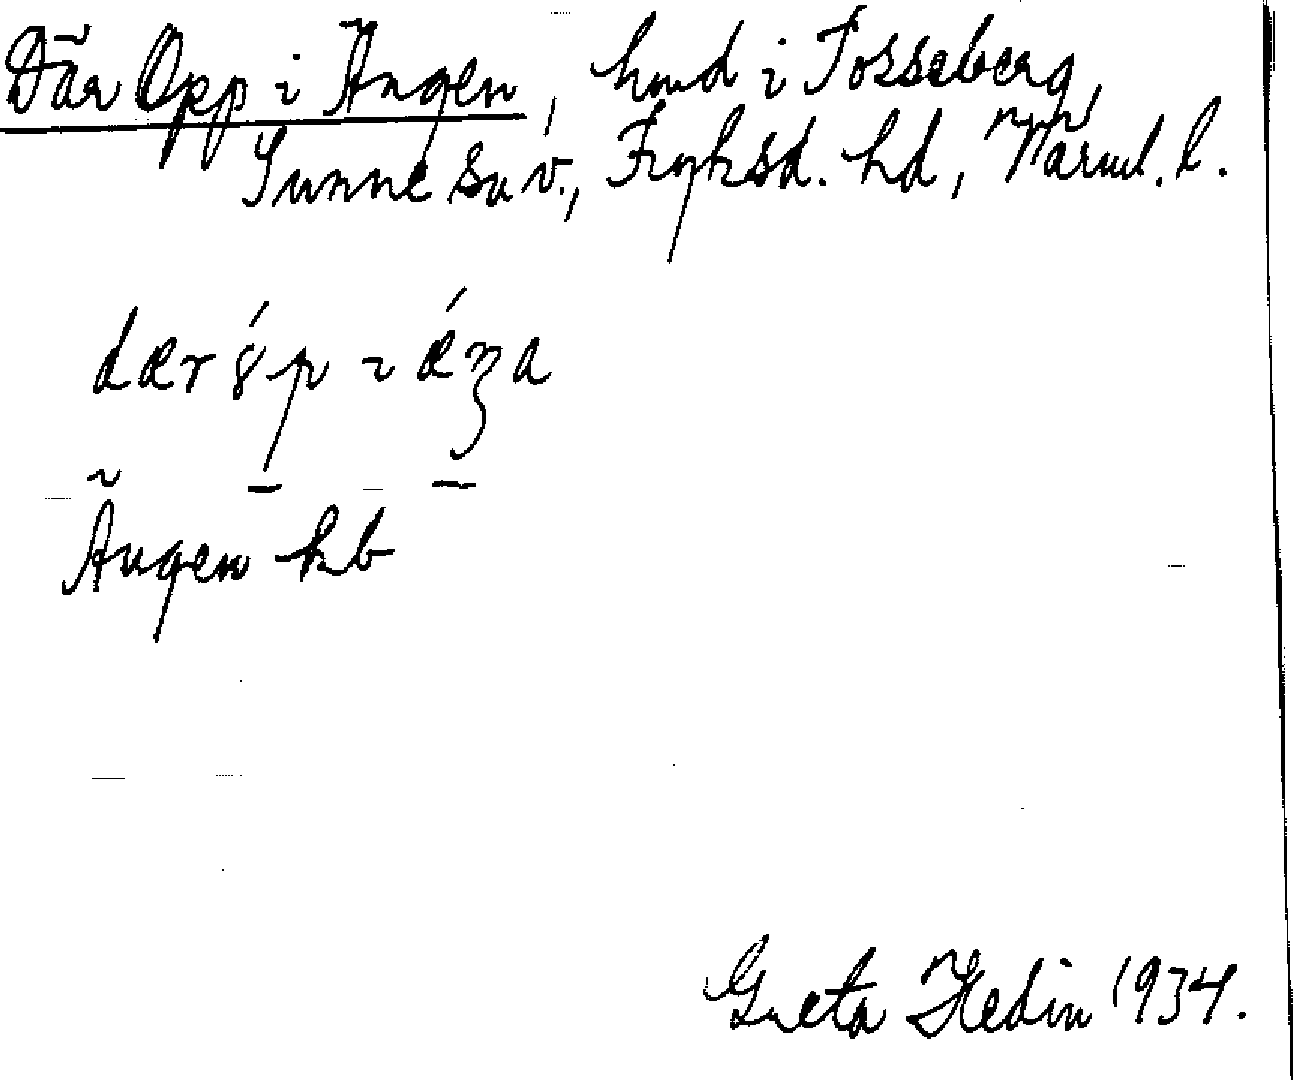 Där Opp i Ängen, hmd i Tosseberg,
Sunne sn v., Fryksd. hd, Värml. l.
dær óp ı ǽŋa
Ängen kb
Greta Hedin 1934.